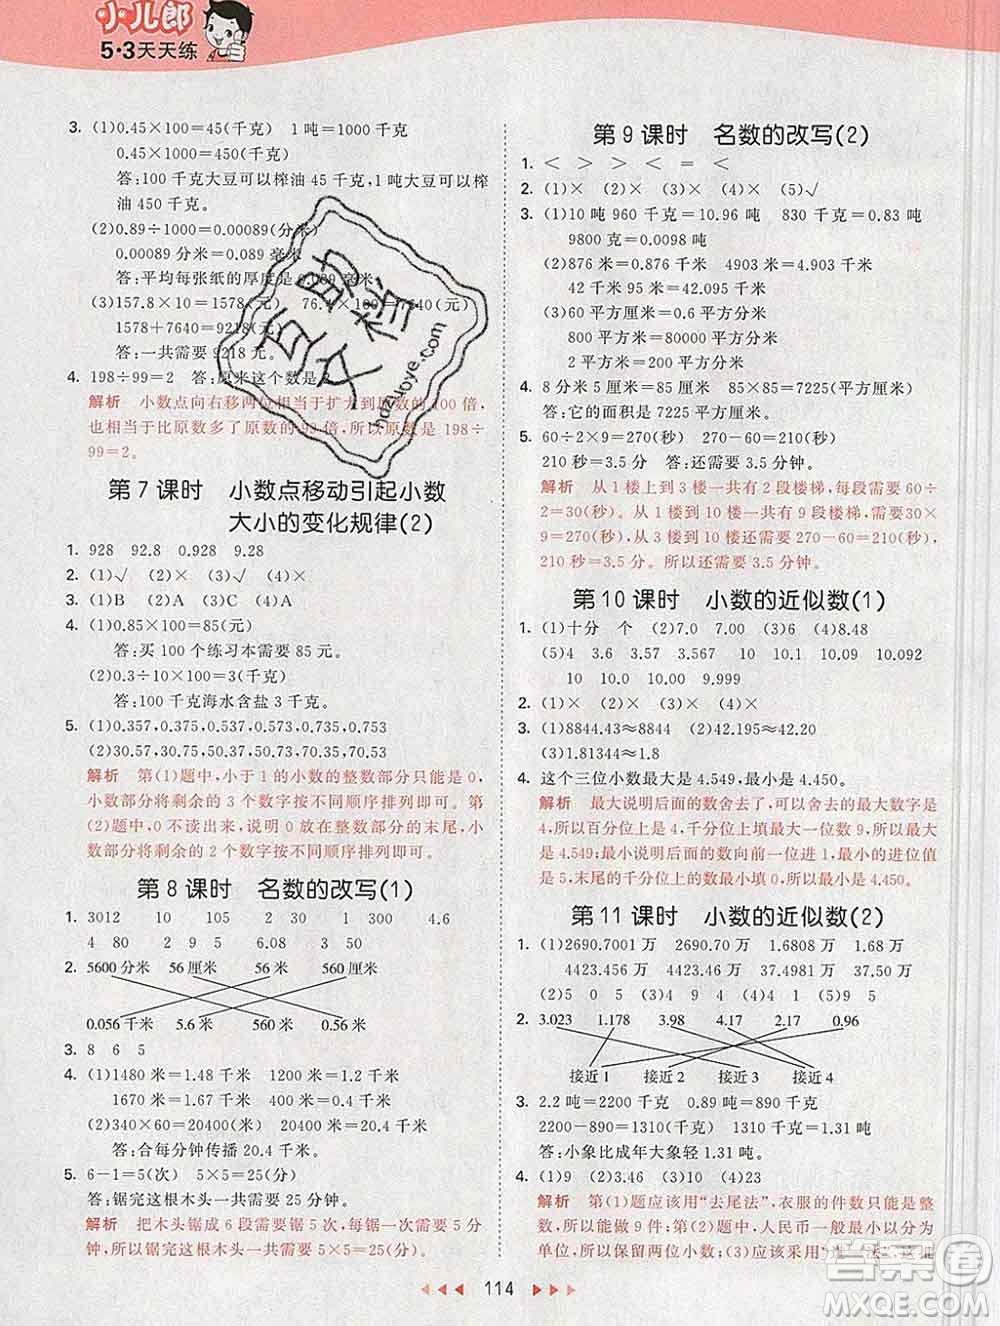 小儿郎
5·3天天练
3. (1)0.45×100=45(千克) 1吨=1000千克
0.45×1000=450(千克)
答:100千克大豆可以榨油45千克,1吨大豆可以榨
油450千克。
(2)0.89÷1000=0.00089(分米)
0.00089分米=0.089毫米
答:平均每张纸的厚度是0.089毫米。
(3)157.8×10=1578(元) 76.4×100=7640(元)
1578+7640=9218(元)
答:一共需要9218元。
4. 198÷99=2 答:原来这个数是2
解析 小数点向右移两位相当于扩大到原数的100倍,
也相当于比原数多了原数的99倍,所以原数是198÷
99=2。
第7课时 小数点移动引起小数
大小的变化规律(2)
1. 928 92.8 0.928 9.28
2. (1)√ (2)× (3)× (4)×
3. (1)B (2)A (3)C (4)A
4. (1)0.85×100=85(元)
答:买100个练习本需要85元。
(2)0.3÷10×100=3(千克)
答:100千克海水含盐3千克。
5. (1)0.357,0.375,0.537,0.573,0.735,0.753
(2)30.57,30.75,50.37,50.73,70.35,70.53
解析 第(1)题中,小于1的小数的整数部分只能是0,
小数部分将剩余的3个数字按不同顺序排列即可。第
(2)题中,0不读出来,说明0放在整数部分的末尾,小
数部分将剩余的2个数字按不同顺序排列即可。
第8课时 名数的改写(1)
1. 3012 10 105 2 30 1 300 4.6
4 80 2 9 5 6.08 350
2. 5600分米 56厘米 56米 560厘米
0.056千米 5.6米 560米 0.56米
3. 8 6 5
4. (1)1480米=1.48千米 1200米=1.2千米
1670米=1.67千米 400米=0.4千米
(2)340×60=20400(米) 20400米=20.4千米
答:合每分钟传播20.4千米。
5. 6-1=5(次) 5×5=25(分)
答:锯完这根木头一共需要25分钟。
解析 把木头锯成6段需要锯5次,每锯一次需要5分
钟,所以锯完这根木头一共需要5×5=25(分)。
第9课时 名数的改写(2)
1. < > > < = <
2. (1)× (2)× (3)× (4)× (5)√
3. (1)10吨960千克=10.96吨 830千克=0.83吨
9800克=0.0098吨
(2)876米=0.876千米 4903米=4.903千米
42千米95米=42.095千米
(3)60平方厘米=0.6平方分米
800平方厘米=0.08平方米
2平方米=200平方分米
4. 8分米5厘米=85厘米 85×85=7225(平方厘米)
答:它的面积是7225平方厘米。
5. 60÷2×9=270(秒) 270-60=210(秒)
210秒=3.5分 答:还需要3.5分钟。
解析 从1楼上到3楼一共有2段楼梯,每段需要60÷
2=30(秒)。从1楼到10楼一共有9段楼梯,需要30×
9=270(秒),从3楼到10楼还需要270-60=210(秒),
210秒=3.5分。所以还需要3.5分钟。
第10课时 小数的近似数(1)
1. (1)十分 个 (2)7.0 7.00 (3)6 (4)8.48
(5)4 3.6 3.57 3.567 10 10.1 10.09 10.092
10 10.0 10.00 9.999
2. (1)× (2)× (3)× (4)×
3. (1)8844.43≈8844 (2)42.195≈42.20
(3)1.81344≈1.8
4. 这个三位小数最大是4.549,最小是4.450。
解析 最大说明后面的数舍去了,可以舍去的最大是
4,所以百分位上填4,千分位上填最大一位数9,所以最大
是4.549;最小说明后面的数向前一位进一,最小的进位值
是5,末尾的千分位上填最小数0,所以最小是4.450。
第11课时 小数的近似数(2)
1. (1)2690.7001万 2690.70万 1.6808万 1.68万
4423.456万 4423.46万 37.4981万 37.50万
(2)5 0 5 (3)9 (4)4 (5)4
2. 3.023 1.178 3.98 4.17 2.17 0.96
接近1 接近2 接近3 接近4
3. 2.2吨=2200千克 0.89吨=890千克
2200-890=1310(千克) 1310千克=1.31吨
答:小象比成年大象轻1.31吨。
4. (1)9 (2)13.46 (3)10 (4)23
解析 第(1)题应该用“去尾法”,衣服的件数只能是整
数,所以能做9件;第(2)题中,人民币一般以分为最小
单位,所以保留两位小数;(3)应该采用“进一法”
114
互助文档
hdzuoye.com
答案圈
MXQE.COM